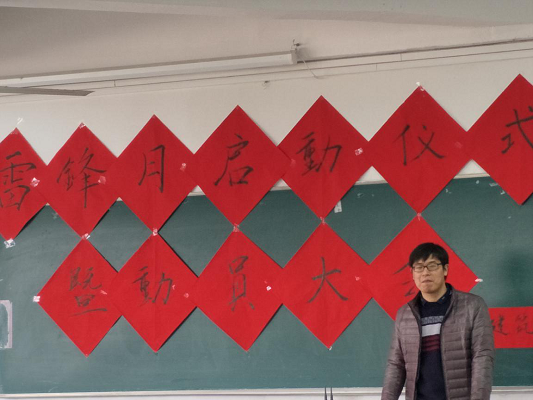 雷鋒月启動仪式
暨動員大会
建筑